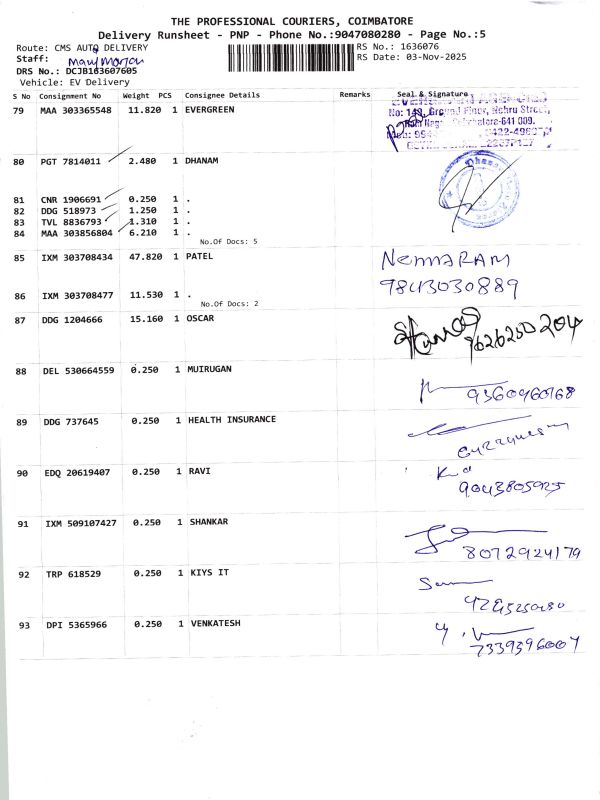 THE PROFESSIONAL COURIERS, COIMBATORE
Delivery Runsheet - PNP - Phone No.:9047080280 - Page No.:5
Route: CMS AUTO DELIVERY
RS No.: 1636076
Staff:
RS Date: 03-Nov-2025
DRS No.: DCJB163607605
Vehicle: EV Delivery
S No Consignment No Weight PCS Consignee Details Remarks Seal & Signature
79 MAA 303365548 11.820 1 EVERGREEN
Ground Floor, Nehru Street,
-641 009.
80 PGT 7814011 2.480 1 DHANAM
81 CNR 1906691 0.250 1 .
82 DDG 518973 1.250 1 .
83 TVL 8836793 1.310 1 .
84 MAA 303856804 6.210 1 .
No.Of Docs: 5
85 IXM 303708434 47.820 1 PATEL
NEMARAM
9843030889
86 IXM 303708477 11.530 1 .
No.Of Docs: 2
87 DDG 1204666 15.160 1 OSCAR
9626250204
88 DEL 530664559 0.250 1 MUIRUGAN
9360460768
89 DDG 737645 0.250 1 HEALTH INSURANCE
90 EDQ 20619407 0.250 1 RAVI
9043805925
91 IXM 509107427 0.250 1 SHANKAR
8072924179
92 TRP 618529 0.250 1 KIYS IT
93 DPI 5365966 0.250 1 VENKATESH
7339396007